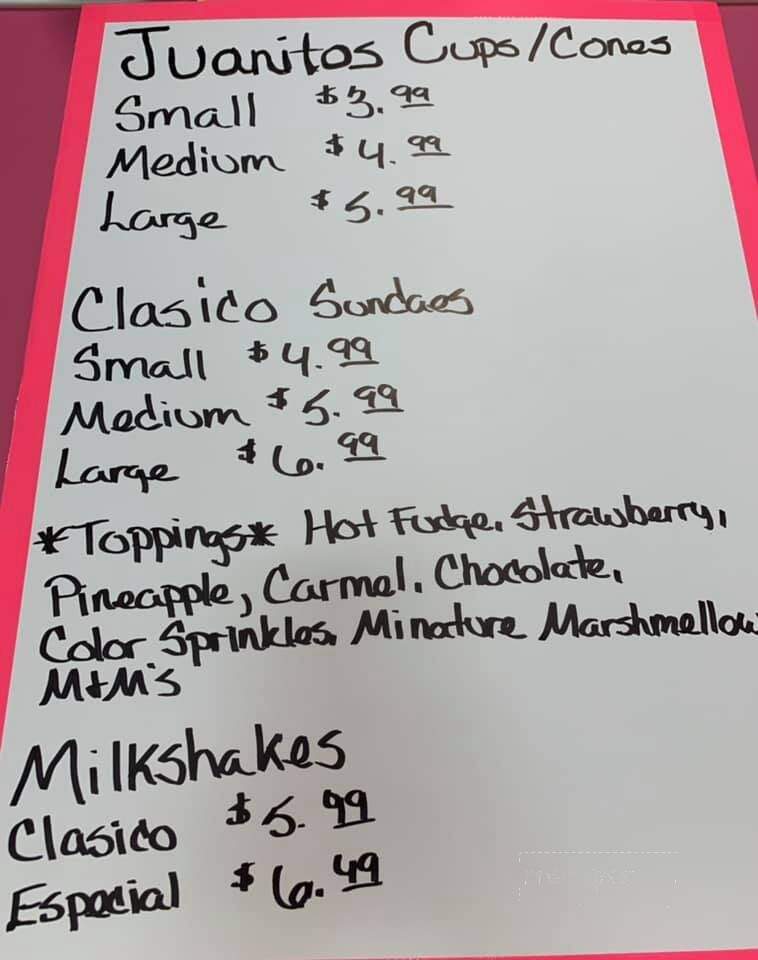 Juanitos Cups/Cones
Small $3.99
Medium $4.99
Large $5.99
Clasico Sundaes
Small $4.99
Medium $5.99
Large $6.99
*Toppings* Hot Fudge, Strawberry,
Pineapple, Carmel, Chocolate,
Color Sprinkles, Minature Marshmellow
M+M's
Milkshakes
Clasico $5.99
Especial $6.49